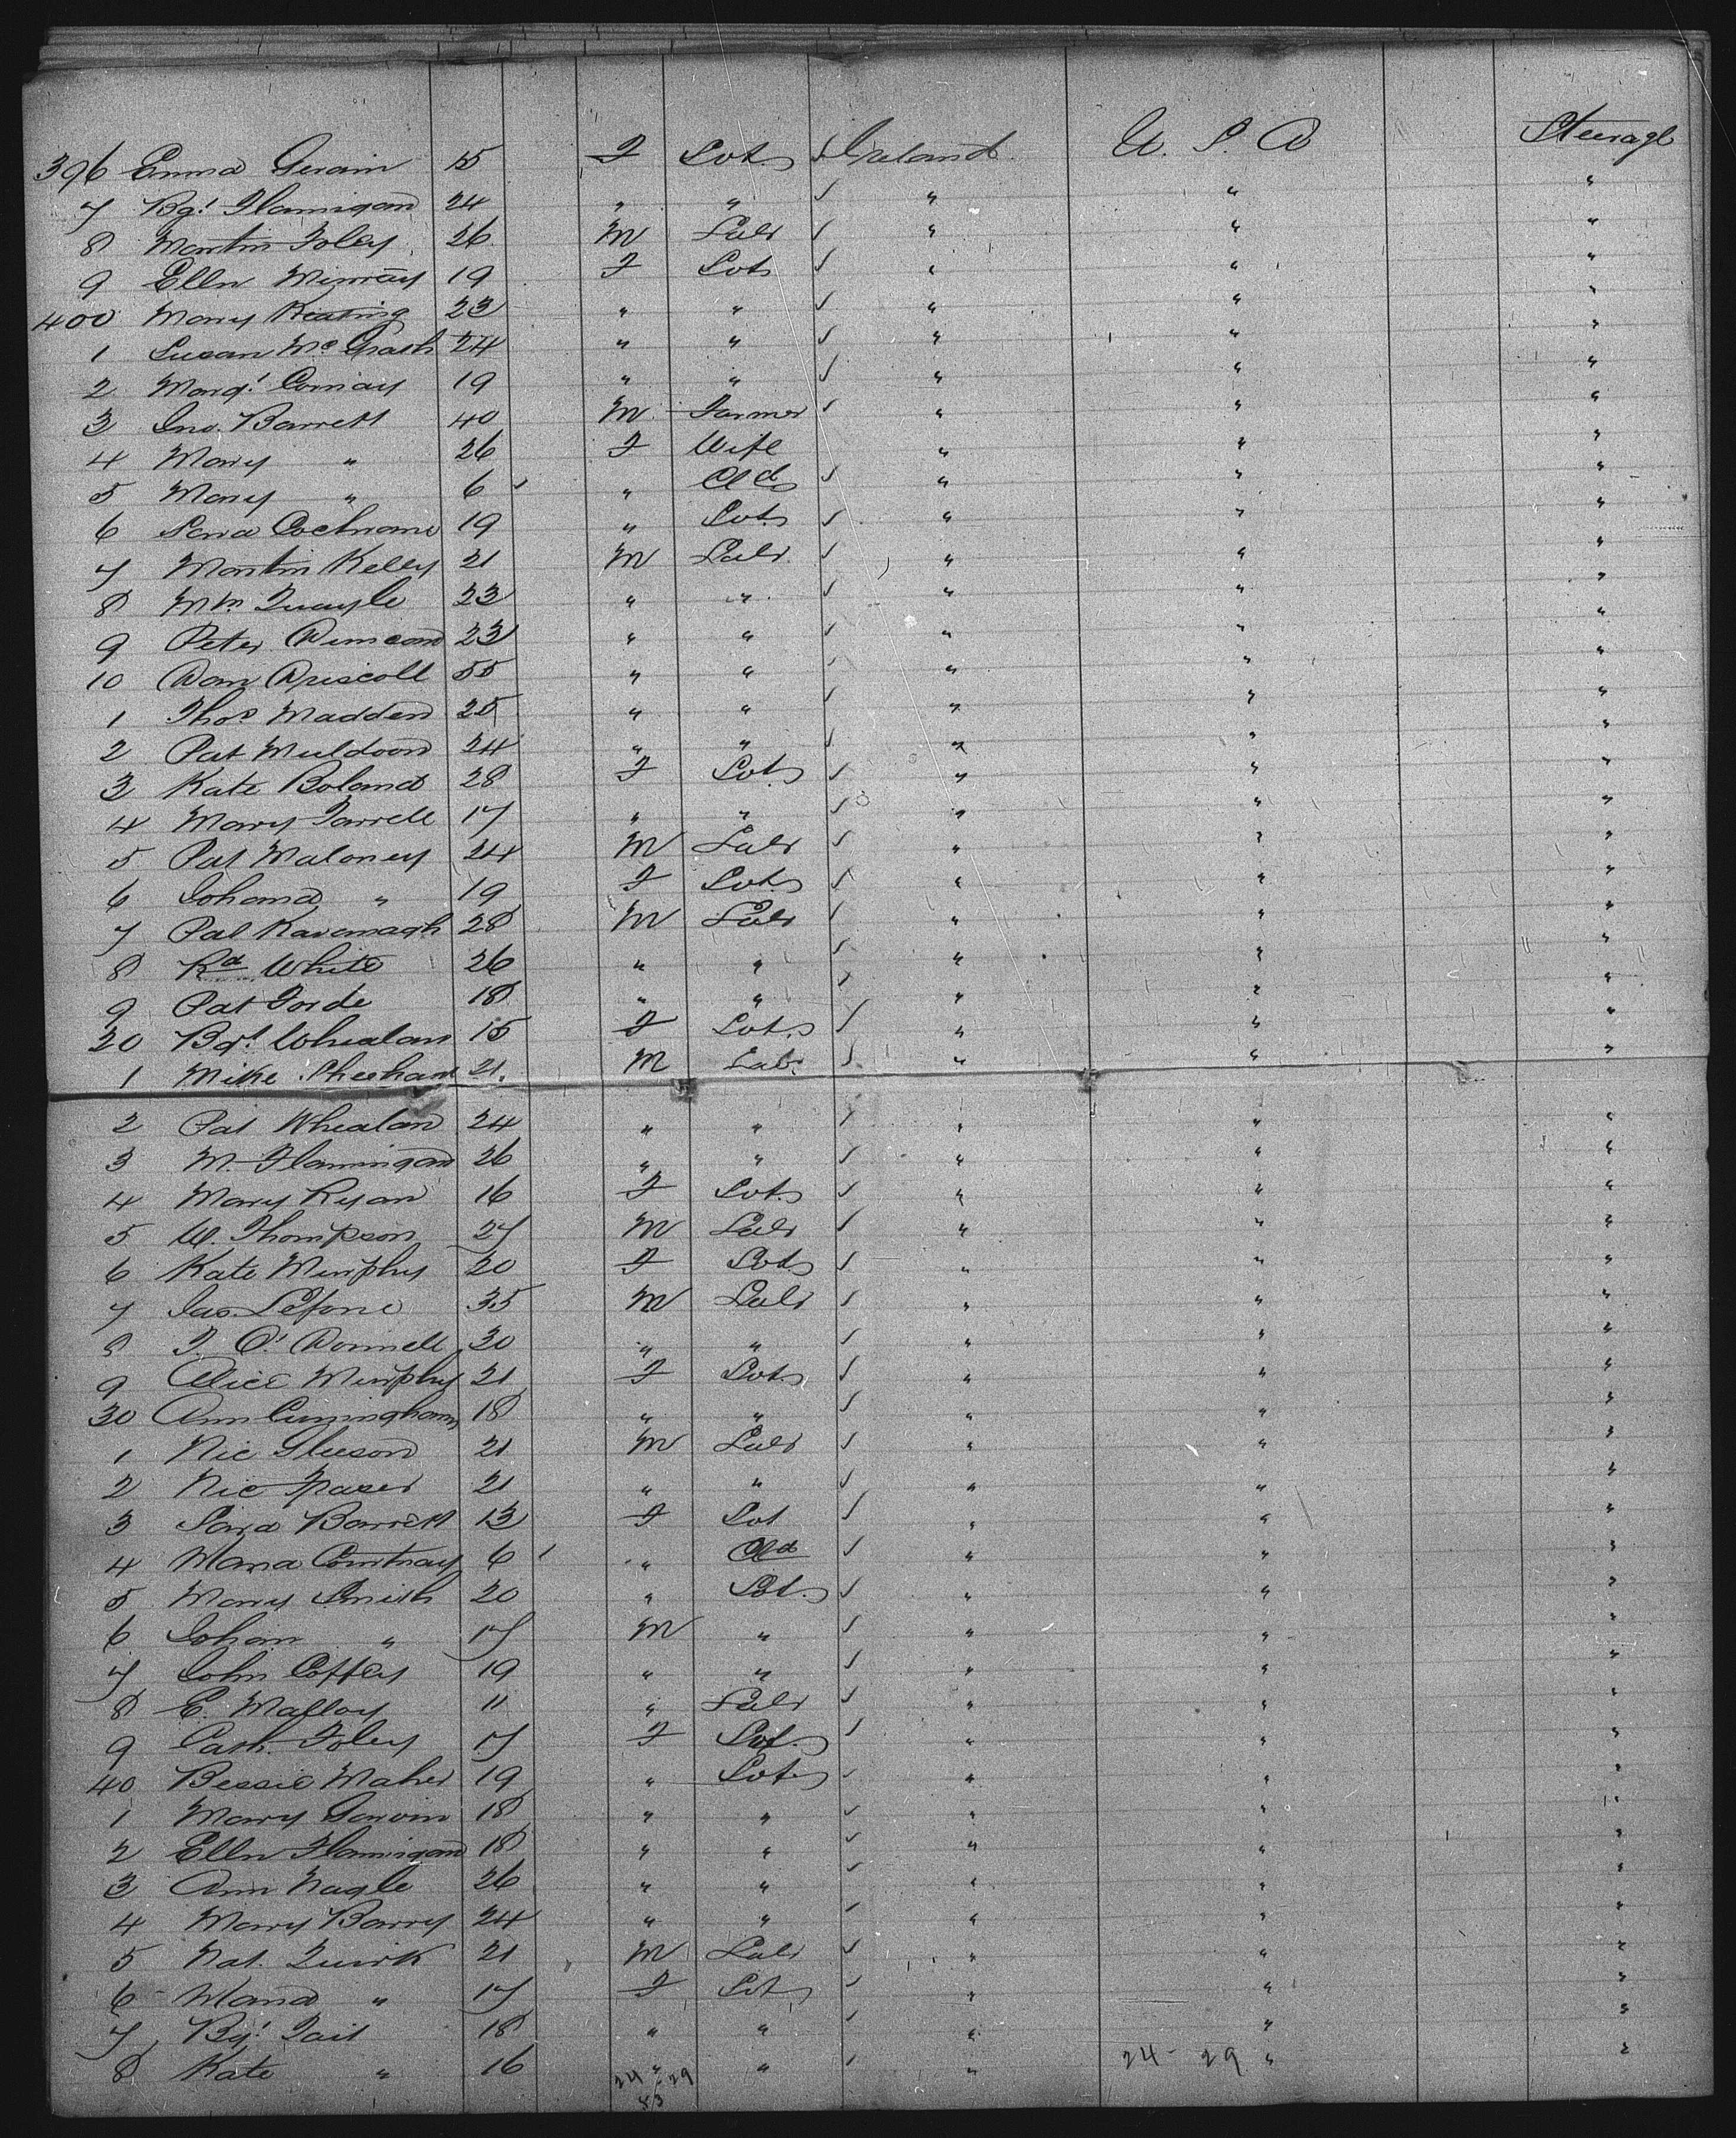 396 Emma Gerain 15 F Svt ✓ Ireland U. S. A Steerage
7 Bgt Flannigan 24 " " ✓ " " "
8 Martin Foley 26 M Labr ✓ " " "
9 Ellen Murray 19 F Svt ✓ " " "
400 Mary Keating 23 " " ✓ " " "
1 Susan McGrath 24 " " ✓ " " "
2 Margt Conway 19 " " ✓ " " "
3 Jno. Barrett 40 M Farmer ✓ " " "
4 Mary " 26 F Wife " " "
5 Mary " 6 ✓ " Cld ✓ " " "
6 Sara Cochrane 19 " Svt ✓ " " "
7 Martin Kelly 21 M Labr ✓ " " "
8 Wm Quayle 23 " " ✓ " " "
9 Peter Duncan 23 " " ✓ " " "
10 Dan Driscoll 55 " " ✓ " " "
1 Thos Madden 25 " " ✓ " " "
2 Pat Muldoon 24 " " ✓ " " "
3 Kate Boland 28 F Svt ✓ " " "
4 Mary Farrell 17 " " ✓ " " "
5 Pat Maloney 24 M Labr ✓ " " "
6 Johana " 19 F Svt ✓ " " "
7 Pat Kavanagh 28 M Labr ✓ " " "
8 Rd White 26 " " ✓ " " "
9 Pat Forde 18 " " ✓ " " "
20 Bgt Whealan 15 F Svt ✓ " " "
1 Mike Sheehan 21 M Labr ✓ " " "
2 Pat Whealan 24 " " ✓ " " "
3 M. Flannigan 26 " " ✓ " " "
4 Mary Ryan 16 F Svt ✓ " " "
5 W. Thompson 27 M Labr ✓ " " "
6 Kate Murphy 20 F Svt ✓ " " "
7 Jas. Lefone 35 M Labr ✓ " " "
8 T. O'Donnell 30 " " ✓ " " "
9 Alice Murphy 21 F Svt ✓ " " "
30 Ann Cunningham 18 " " ✓ " " "
1 Nic Gleeson 21 M Labr ✓ " " "
2 Nic 21 " " ✓ " " "
3 Sara Barrett 13 F Svt ✓ " " "
4 Maria Courtnay 6 ✓ " Cld ✓ " " "
5 Mary Smith 20 " Svt ✓ " " "
6 Johan " 17 M " ✓ " " "
7 John Coffey 19 " " ✓ " " "
8 E. Malloy 11 " Labr ✓ " " "
9 Cath. Foley 17 F Svt ✓ " " "
40 Bessie Maher 19 " Svt ✓ " " "
1 Mary Garvin 18 " " ✓ " " "
2 Ellen Flannigan 18 " " ✓ " " "
3 Ann Nagle 26 " " ✓ " " "
4 Mary Barry 24 " " ✓ " " "
5 Nat. Quirk 21 M Labr ✓ " " "
6 Maria " 17 F Svt ✓ " " "
7 Bgt Tait 18 " " ✓ " " "
8 Kate " 16 " " ✓ " " "
24 29 24 - 29
53